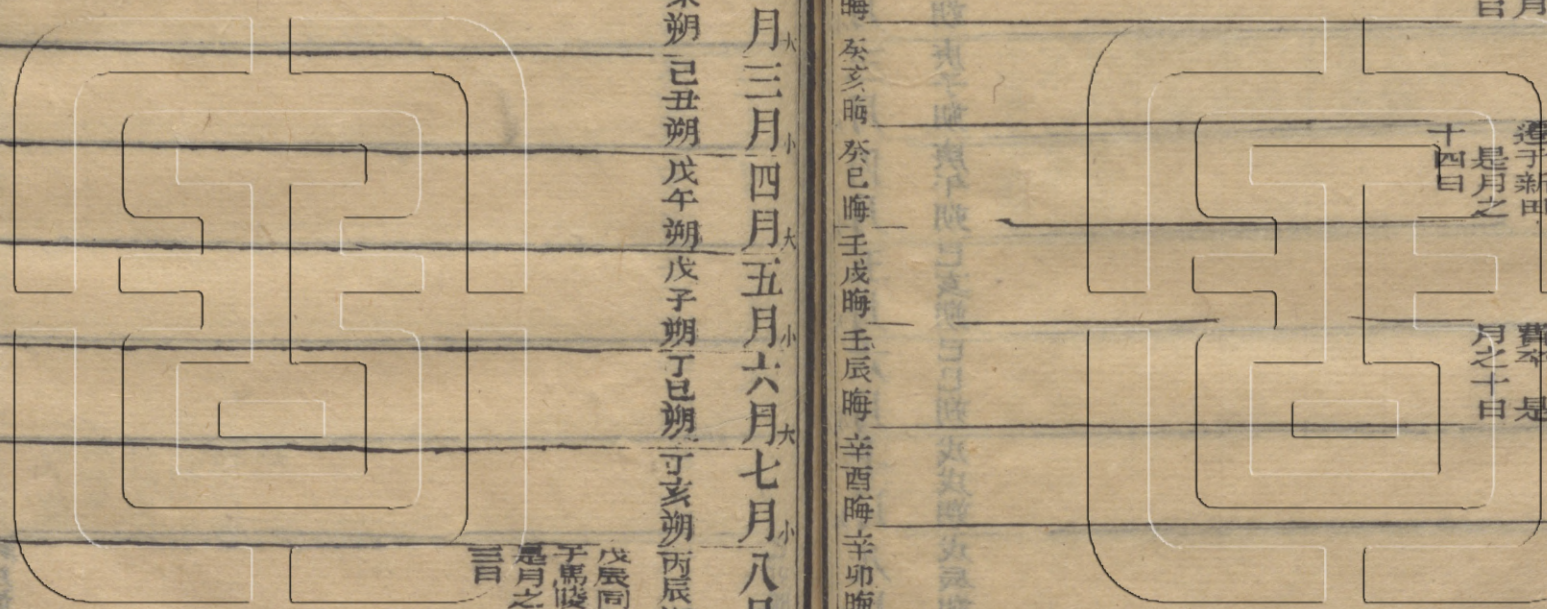 月之
官
遷于新田
是月之
十四日
舊卒 是
月之十日
晦
癸亥晦
癸巳晦
壬戌晦
壬辰晦
辛酉晦
辛卯晦
月大
三月小
四月大
五月小
六月大
七月小
八月
朔
己丑朔
戊午朔
戊子朔
丁巳朔
丁亥朔
丙辰
戊辰同
于馬陵
是月之
三日